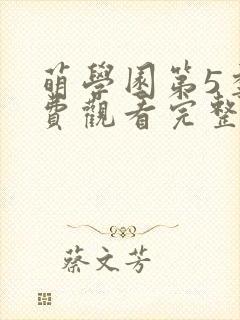 萌學園第5
費觀看完整
蔡文芳